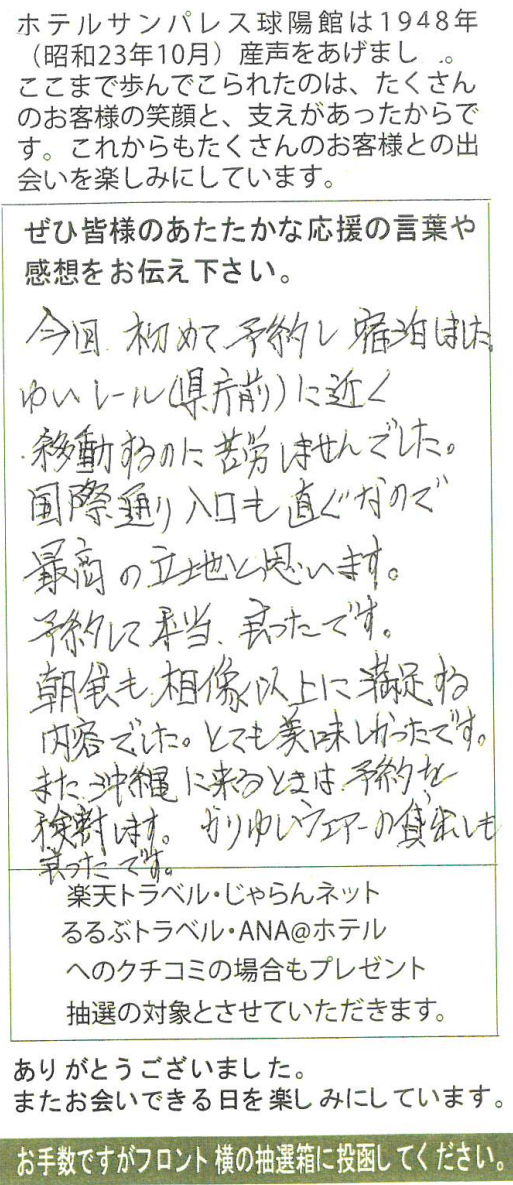 ホテルサンパレス球陽館は1948年
（昭和23年10月）産声をあげまし 。
ここまで歩んでこられたのは、たくさん
のお客様の笑顔と、支えがあったからで
す。これからもたくさんのお客様との出
会いを楽しみにしています。
ぜひ皆様のあたたかな応援の言葉や
感想をお伝え下さい。
今回 初めて予約し宿泊しました
ゆいレール(県庁前)に近く
移動するのに苦労しませんでした。
国際通り入口も直ぐなので
最高の立地と思います。
予約して本当、良かったです。
朝食も相像以上に満足する
内容でした。とても美味しかったです。
また沖縄に来るときは予約を
検討します。かりゆしウェアーの貸出しも
良かったです。
楽天トラベル・じゃらんネット
るるぶトラベル・ANA@ホテル
へのクチコミの場合もプレゼント
抽選の対象とさせていただきます。
ありがとうございました。
またお会いできる日を楽しみにしています。
お手数ですがフロント横の抽選箱に投函してください。